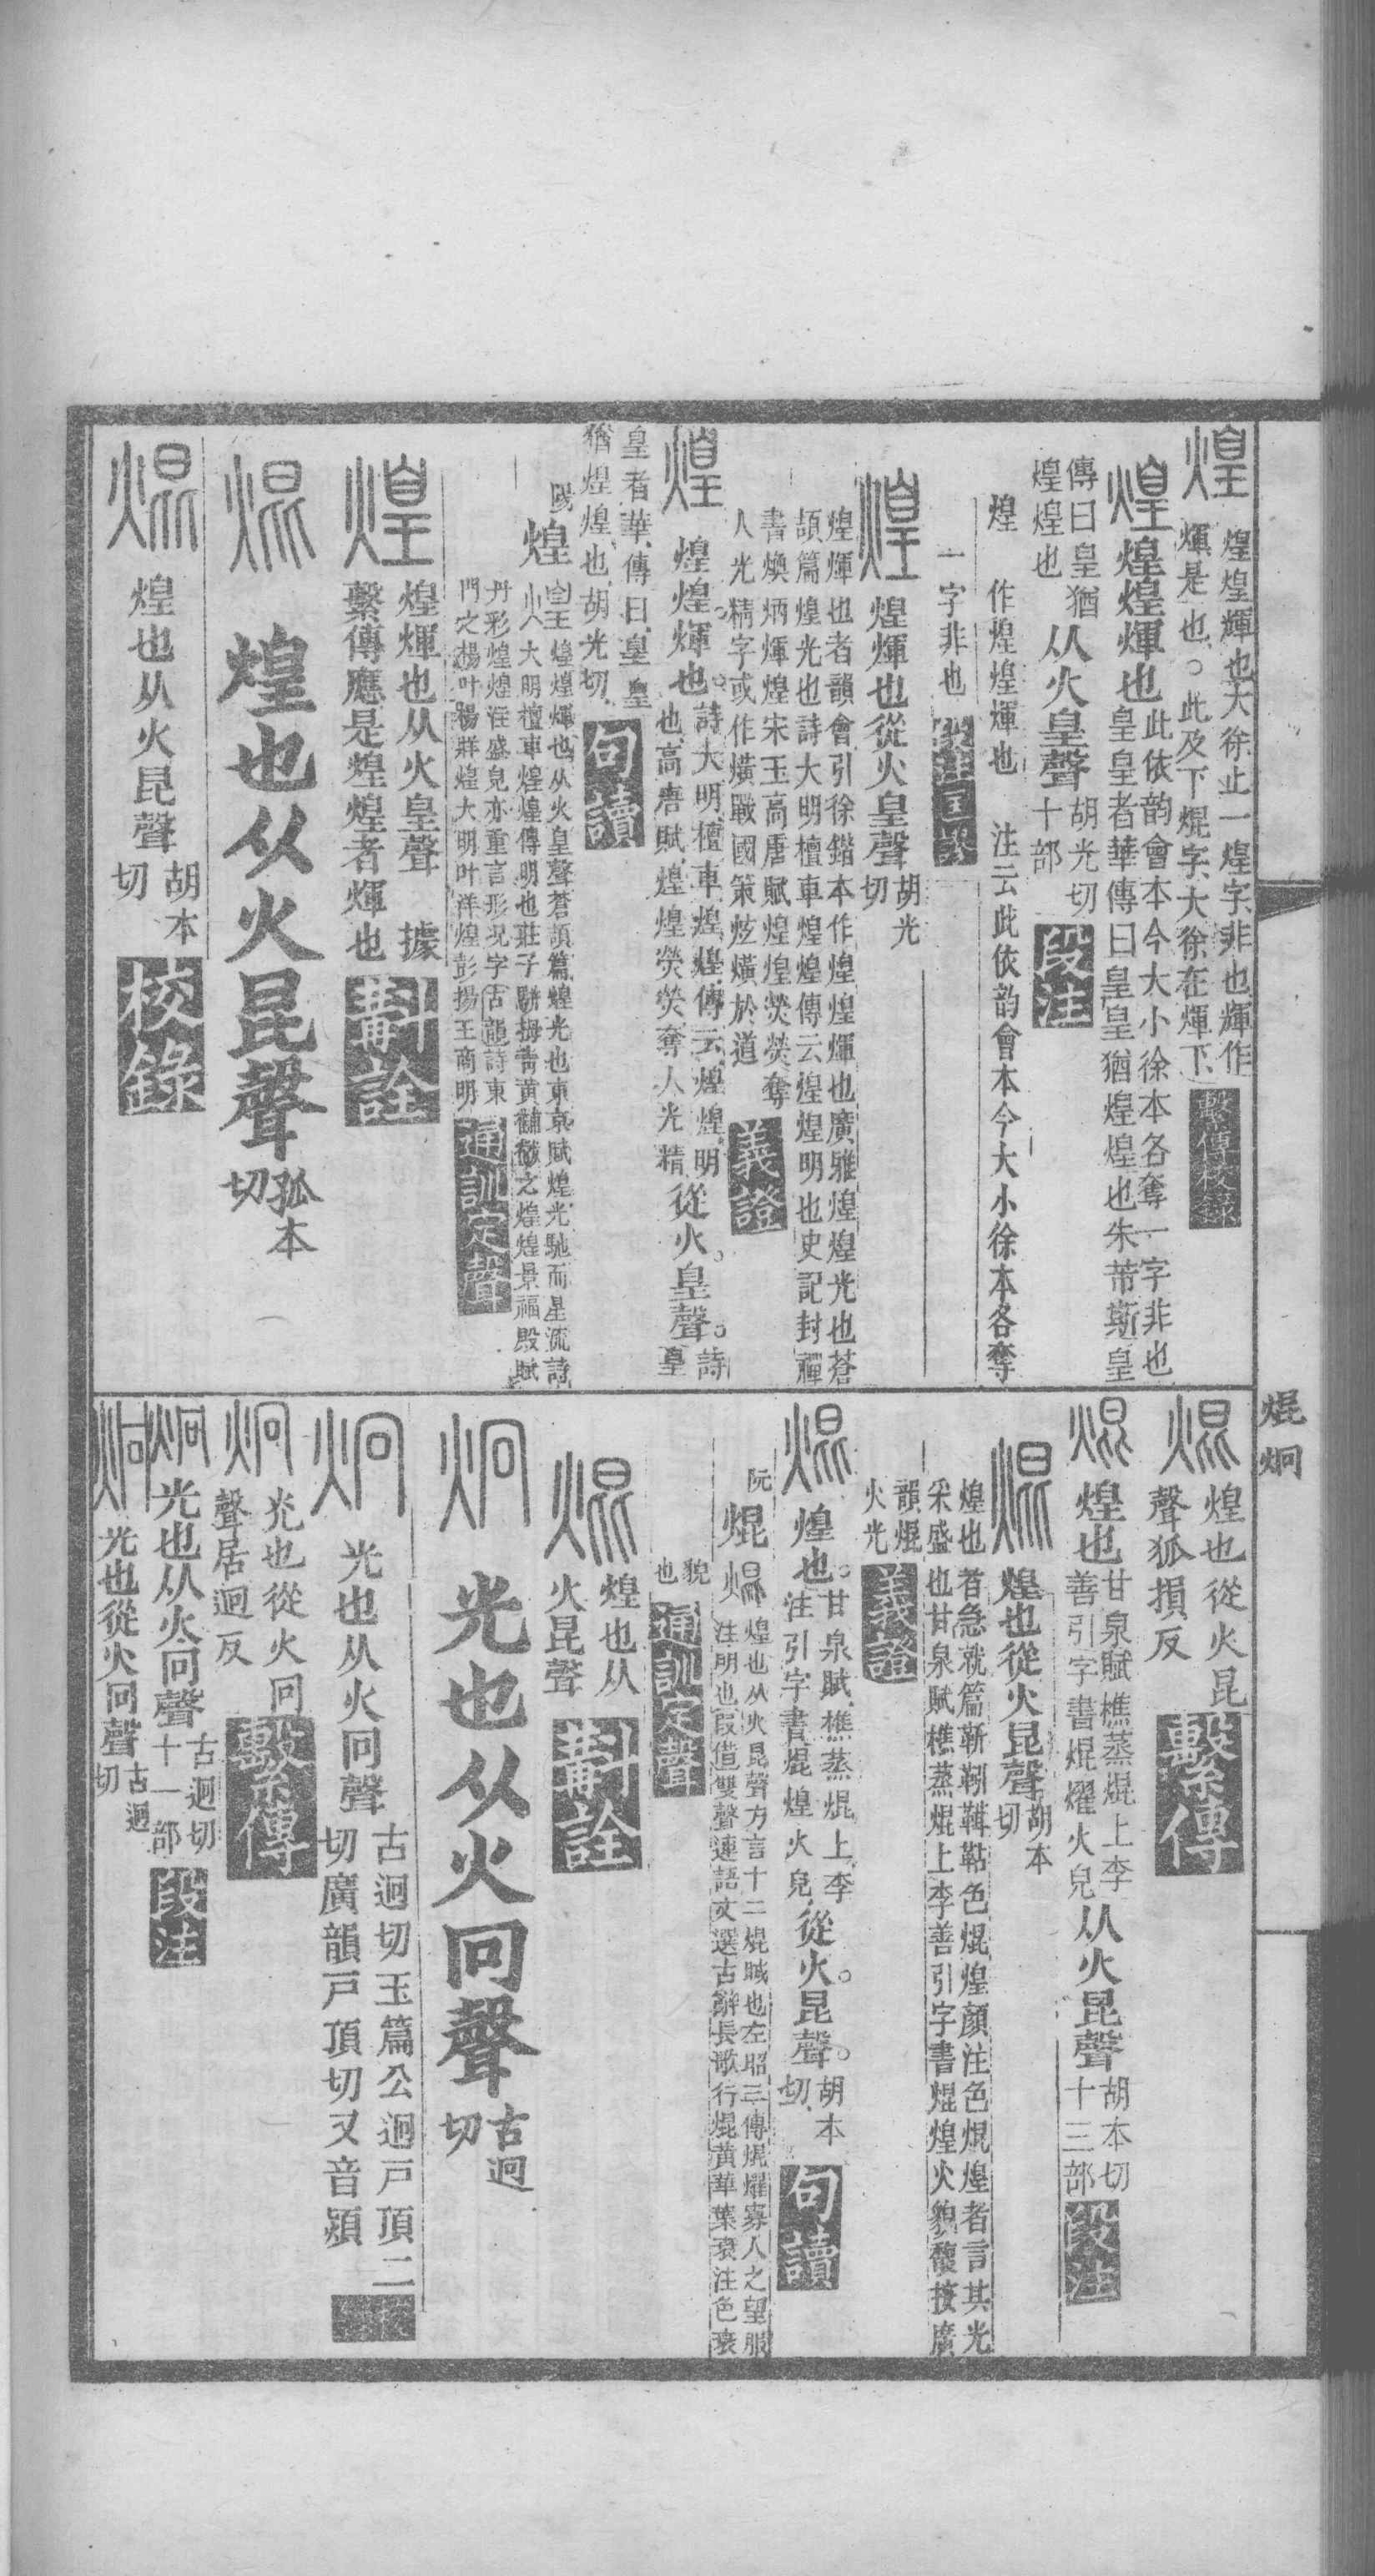 煌 煌煌輝也大徐止一煌字非也輝作
煇是也○此及下焜字大徐在煇下 繫傳校錄
煌 煌煌煇也 此依韵會本今大小徐本各奪一字非也
皇皇者華傳曰皇皇猶煌煌也朱芾斯皇
傳曰皇猶
煌煌也 从火皇聲 胡光切
十部 段注
煌 作煌煌煇也 注云此依韵會本今大小徐本各奪
一字非也 段注匡謬
煌 煌煇也從火皇聲 胡光
切
煌煇也者韻會引徐鍇本作煌煌煇也廣雅煌煌光也蒼
頡篇煌光也詩大明檀車煌煌傳云煌煌明也史記封禪
書煥炳煇煌宋玉高唐賦煌煌熒熒奪
人光精字或作熿戰國策炫熿於道 義證
煌 煌煌煇也 詩大明檀車煌煌傳云煌煌明
也高唐賦煌煌熒熒奪人光精 從火皇聲 詩
皇
皇者華傳曰皇皇
猶煌煌也胡光切 句讀
煌 煌煌煇也从火皇聲蒼頡篇煌光也東京賦煌光馳而星流詩
大明檀車煌煌傳明也莊子駢拇青黃黼黻之煌煌景福殿賦
丹彩煌煌注盛皃亦重言形況字 古韻 詩東
門之楊叶楊牂煌大明叶洋煌彭揚王商明 通訓定聲
煌 煌煇也从火皇聲 據
繫傳應是煌煌者煇也 斠詮
焜 煌也从火昆聲 孤本
切
焜 煌也从火昆聲 胡本
切 校錄
焜炯
焜 煌也從火昆
聲狐損反 繫傳
焜 煌也 甘泉賦樵蒸焜上李
善引字書焜燿火皃 从火昆聲 胡本切
十三部 段注
焜 煌也從火昆聲 胡本
切
煌也者急就篇靳靷鞯䩞色焜煌顏注色焜煌者言其光
采盛也甘泉賦樵蒸焜上李善引字書焜煌火貌馥按廣
韻焜
火光 義證
焜 煌也 甘泉賦樵蒸焜上李
注引字書焜煌火皃 從火昆聲 胡本
切 句讀
阮
焜 煌也从火昆聲方言十二焜晠也左昭三傳焜燿寡人之望服
注明也叚借雙聲連語文選古辭長歌行焜黃華葉衰注色衰
貌
也 通訓定聲
焜 煌也从
火昆聲 斠詮
炯 光也从火冋聲 古迥
切
炯 光也从火冋聲 古迥切玉篇公迥戶頂二
切廣韻戶頂切又音熲
炯 光也從火冋
聲居迥反 繫傳
炯 光也从火冋聲 古迥切
十一部 段注
炯 光也從火冋聲 古迥
切